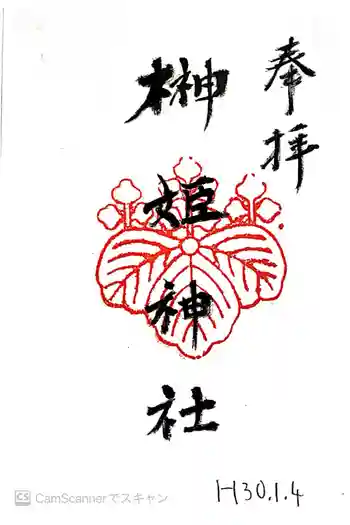 奉拝
榊姫神社
H30.1.4
CS CamScannerでスキャン